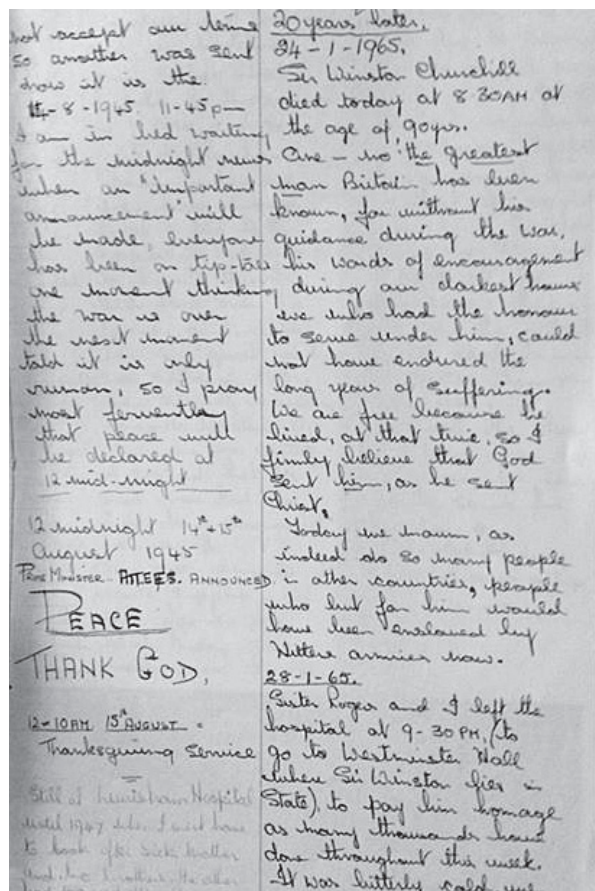 not accept our terms
so another was sent
now it is the
14-8-1945. 11-45pm
I am in bed waiting
for the midnight news
when an "important
announcement" will
be made, everyone
has been on tip-toes
one moment thinking
the war is over
the next moment
told it is only
rumour, so I pray
most fervently
that peace will
be declared at
12 mid-night
12 midnight 14th & 15th
August 1945
PRIME MINISTER ATTLEES. ANNOUNCED
PEACE
THANK GOD,
12-10AM 15th AUGUST.
Thanksgiving Service
Still at Lewisham Hospital
until 1947 when I went home
to look after sick mother
and
20 years later.
24-1-1965.
Sir Winston Churchill
died today at 8 30AM at
the age of 90yrs.
One - no 'the greatest
man Britain has ever
known, for without his
guidance during the war,
his words of encouragement
during our darkest hours
we who had the honour
to serve under him, could
not have endured the
long years of suffering.
We are free because he
lived, at that time, so I
firmly believe that God
sent him, as he sent
Christ.
Today we mourn, as
indeed do so many people
in other countries, people
who but for him would
have been enslaved by
Hitlers armies now.
28-1-65.
Sister Rogers and I left the
hospital at 9-30PM, (to
go to Westminster Hall
where Sir Winston lies in
State), to pay him homage
as many thousands have
done throughout this week.
It was bitterly cold and